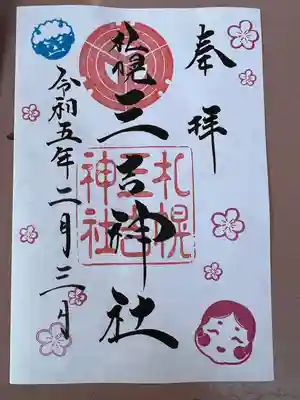 奉拝
札幌
三吉神社
札幌
三吉
神社
令和五年二月三日